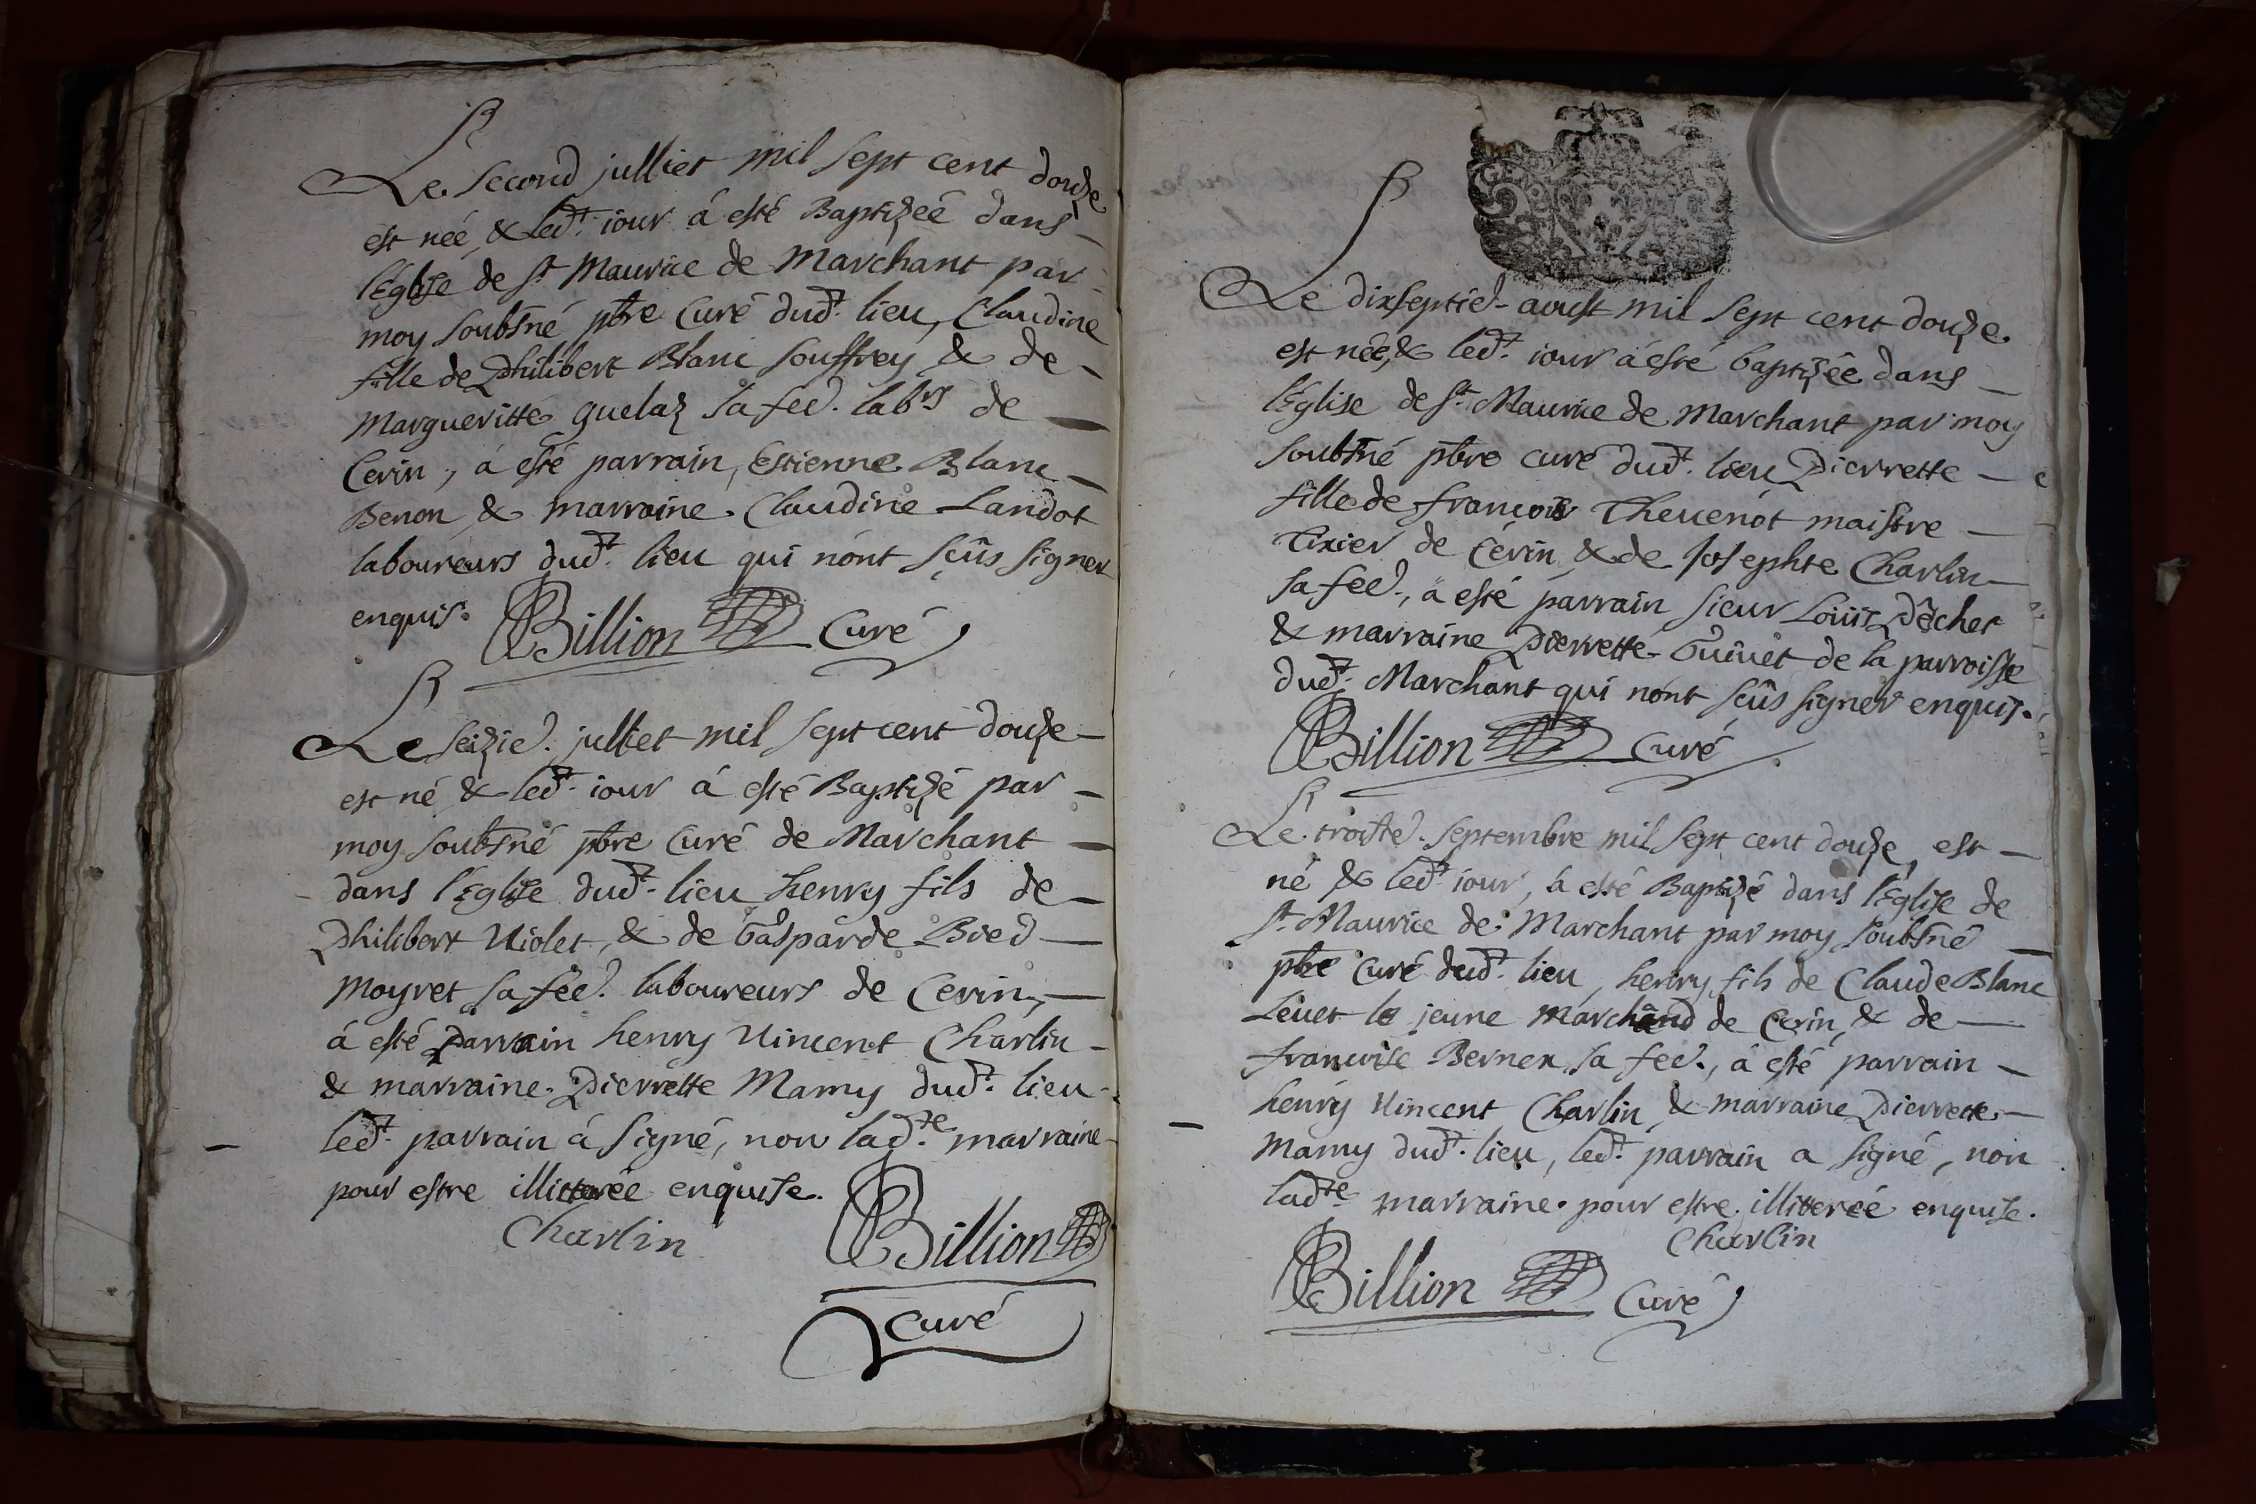 Le second julliet mil sept cent douze
est néé, & led.t iour á esté Baptizéé dans
l'Eglise de st Maurice de Marchant par
moy soubsné pbre Curé dud.t lieu, Claudine
fille de Philibert Blanc souffrey & de
Margueritte guelaz sa feê. labrs de
Cerin, á esté parrain, Estienne Blanc
Benon & marraine Claudine Landot
laboureurs dud.t lieu qui n'ont sçûs signer
enquis. Billion Curé
Le seizie. julliet mil sept cent douze
est né & led.t iour á esté Baptizé par
moy soubsné pbre Curé de Marchant
dans l'Eglise dud.t lieu henry fils de
Philibert Uiolet, & de Gasparde Bied
Moyret sa feê. laboureurs de Cerin,
á esté Parrain henry Uincent Charlin
& marraine Pierrette Mamy dud.t lieu
led.t parrain á signé, non lad.te marraine
pour estre illitterée enquise.
Charlin Billion
Curé
Le dixseptie. aoust mil sept cent douze
est néé, & led.t iour á esté baptizéé dans
l'Eglise de st. Maurice de Marchant par moy
soubsné pbre curé dud.t lieu Pierrette
fille de francois Theuenót maistre
Tixier de Cérin & de Josephte Charlin
sa feê., á esté parrain sieur Loüis Pèchet
& marraine Pierrette Guiuét de la parroisse
dud.t Marchant qui n'ont sçûs signer enquis.
Billion Curé
Le septembre mil sept cent douze, est
né & led.t iour, á esté Baptizé dans l'Eglise de
st. Maurice de Marchant par moy soubsné
pbre Curé dud.t lieu, henry fils de Claude Blanc
Léuet le jeune Márchand de Cerin, & de
francoise Bernex sa feê., á esté parrain
henry Uincent Charlin, & marraine Pierrette
Mamy dud.t lieu, led.t parrain a signé, non
lad.te marraine pour estre illitteréé enquise.
Charlin
Billion Curé